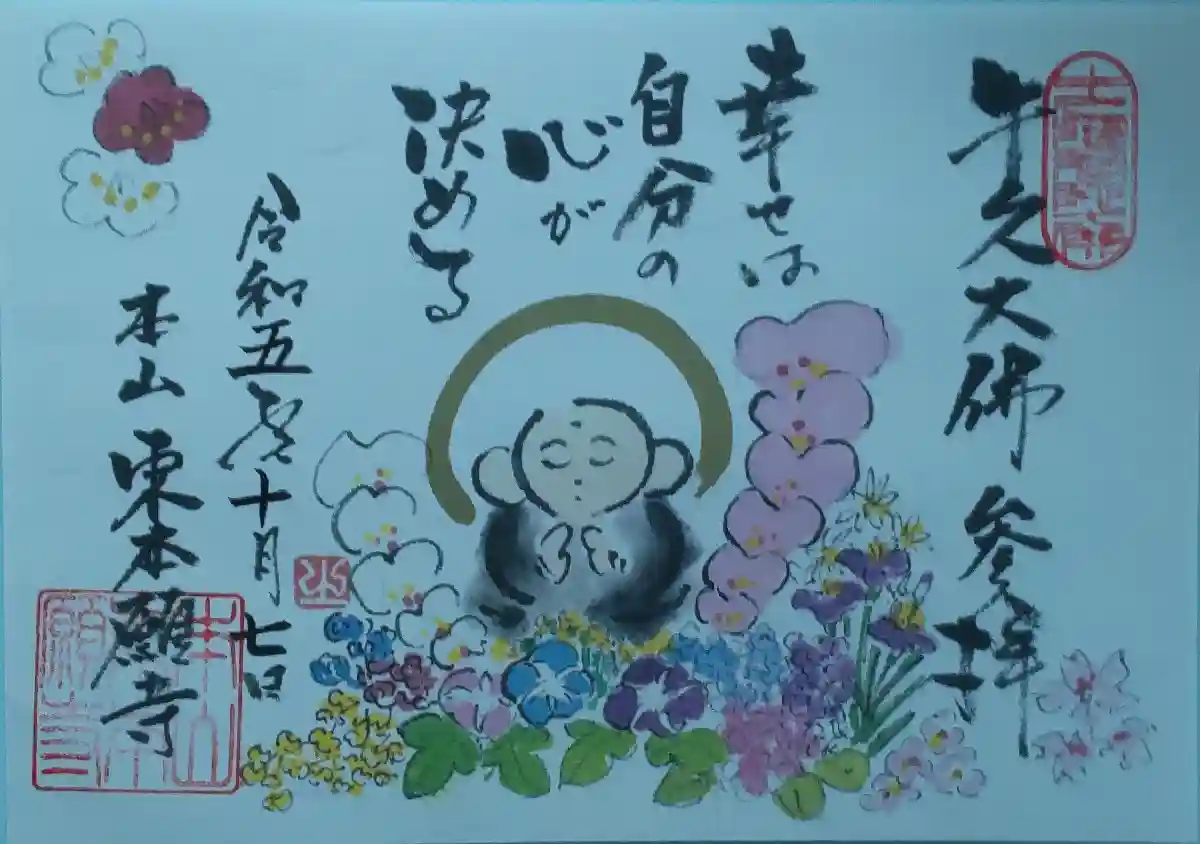 牛久大佛参拝
幸せは
自分の
心が
決める
令和五年十月七日
本山東本願寺